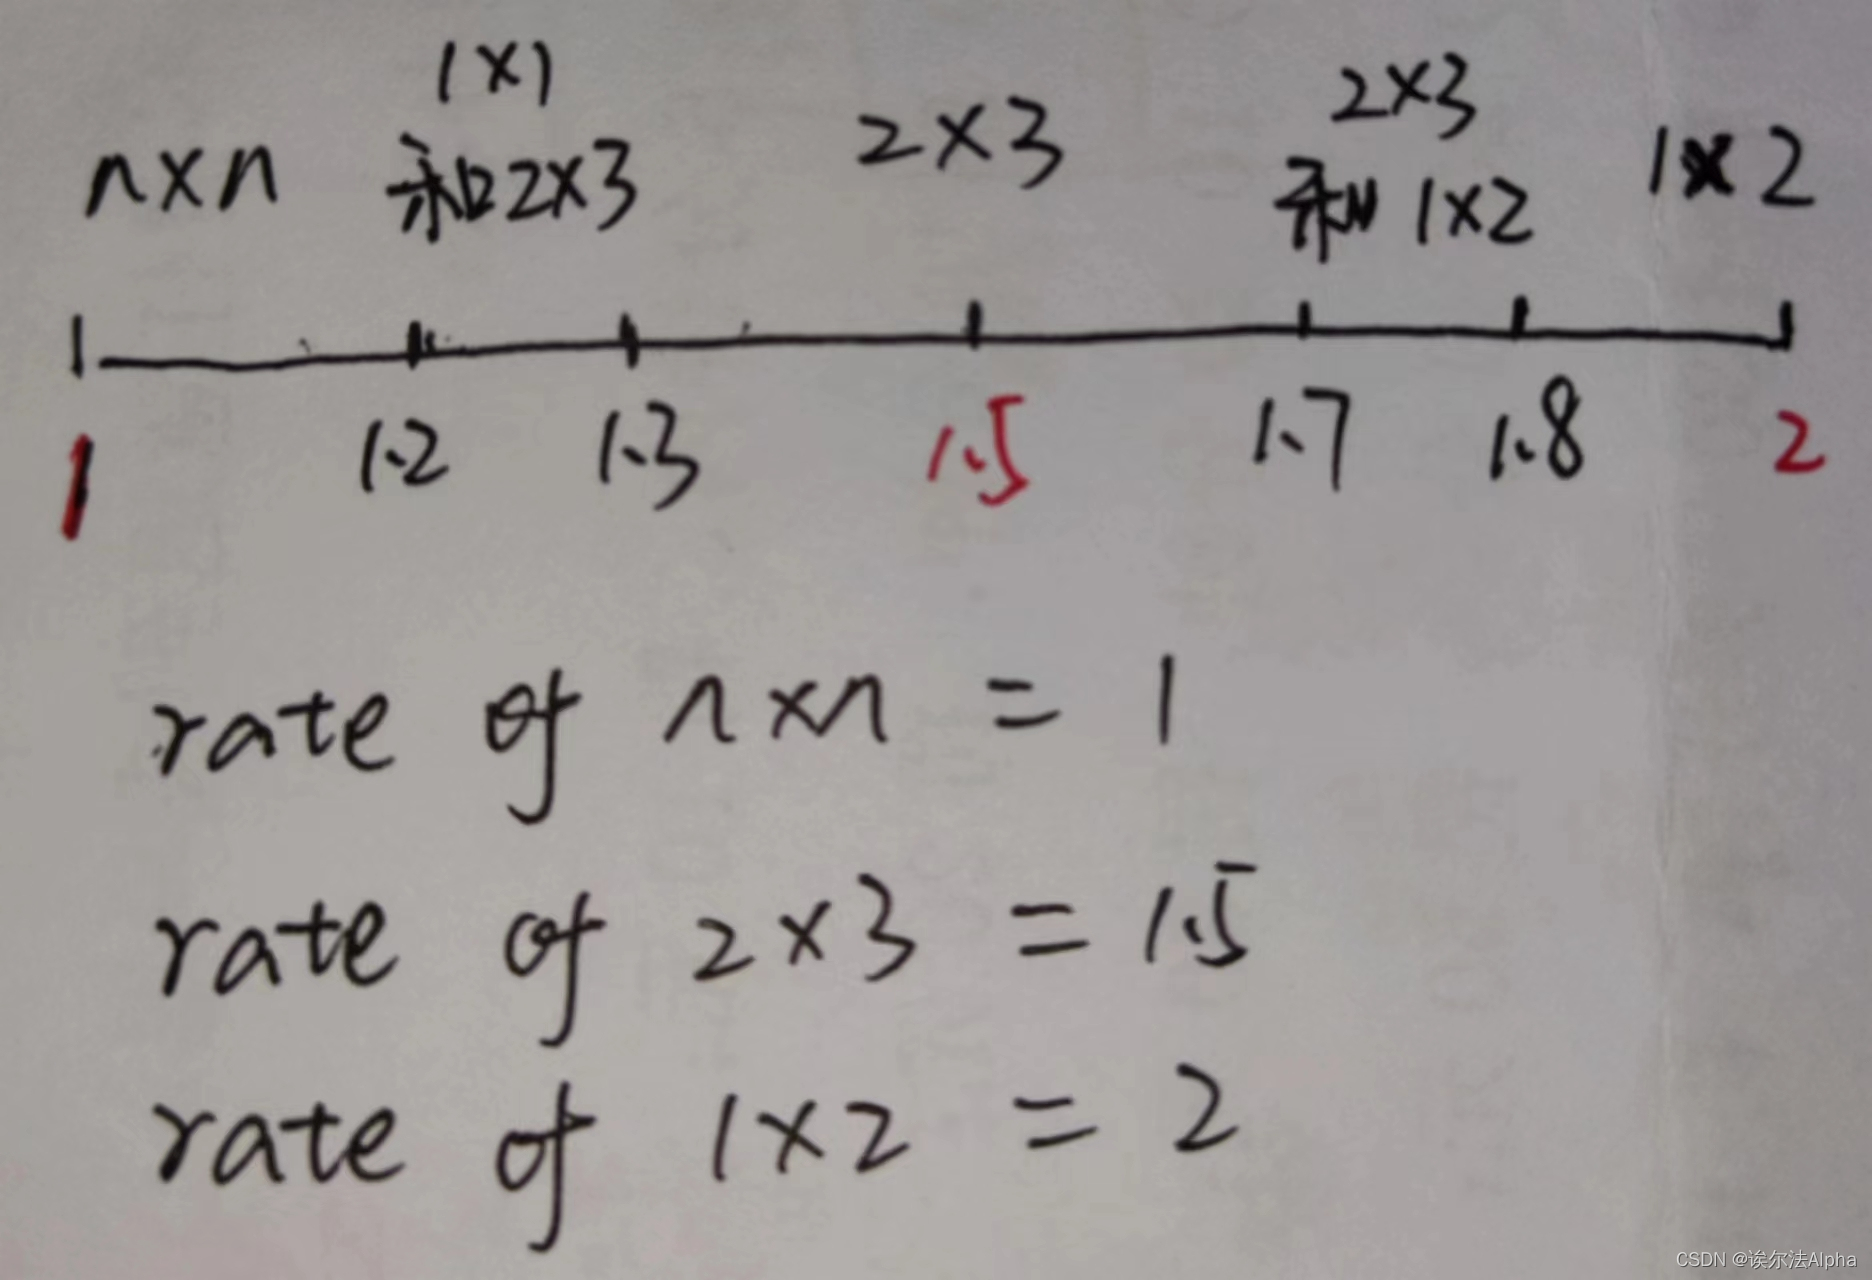 1×1 2×3
n×n 和2×3 2×3 和 1×2 1×2
1 1.2 1.3 1.5 1.7 1.8 2
rate of n×n = 1
rate of 2×3 = 1.5
rate of 1×2 = 2
CSDN @诶尔法Alpha